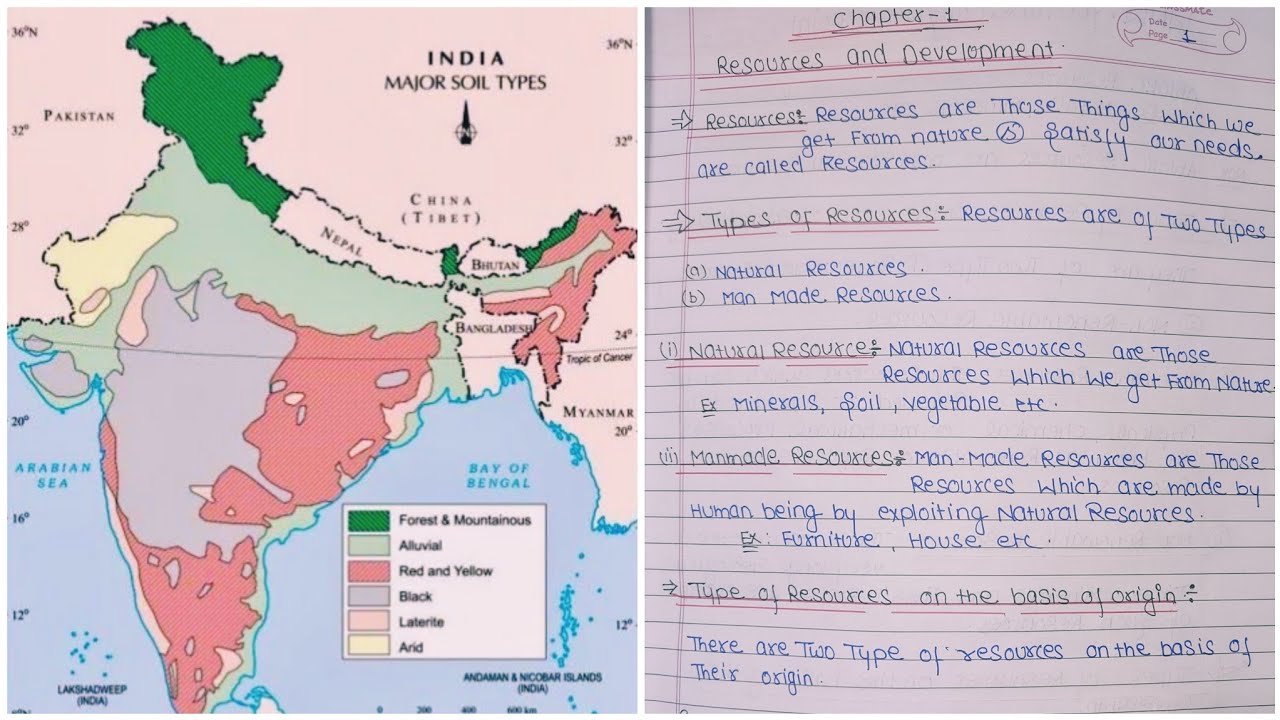 36°N
36°N
INDIA
MAJOR SOIL TYPES
PAKISTAN
32°
32°
CHINA
(TIBET)
28°
28°
NEPAL
BHUTAN
BANGLADESH
24°
24°
Tropic of Cancer
MYANMAR
20°
20°
ARABIAN
SEA
BAY OF
BENGAL
Forest & Mountainous
Alluvial
16°
Red and Yellow
Black
Laterite
Arid
12°
12°
LAKSHADWEEP
(INDIA)
ANDAMAN & NICOBAR ISLANDS
(INDIA)
0 200 400 600 km
Chapter-1
Date
Page 1
Resources and Development.
⇒ Resources÷ Resources are Those Things which we
get From nature & Satisfy our needs.
are called Resources.
⇒ Types of Resources÷ Resources are of Two Types
(a) Natural Resources.
(b) Man Made Resources.
(i) Natural Resource÷ Natural Resources are Those
Resources which we get From Nature
Ex Minerals, Soil, vegetable etc.
(ii) Manmade Resources÷ Man-Made Resources are Those
Resources which are made by
Human being by exploiting Natural Resources.
Ex: Furniture, House etc.
⇒ Type of Resources on the basis of origin÷
There are Two Type of resources on the basis of
Their origin.